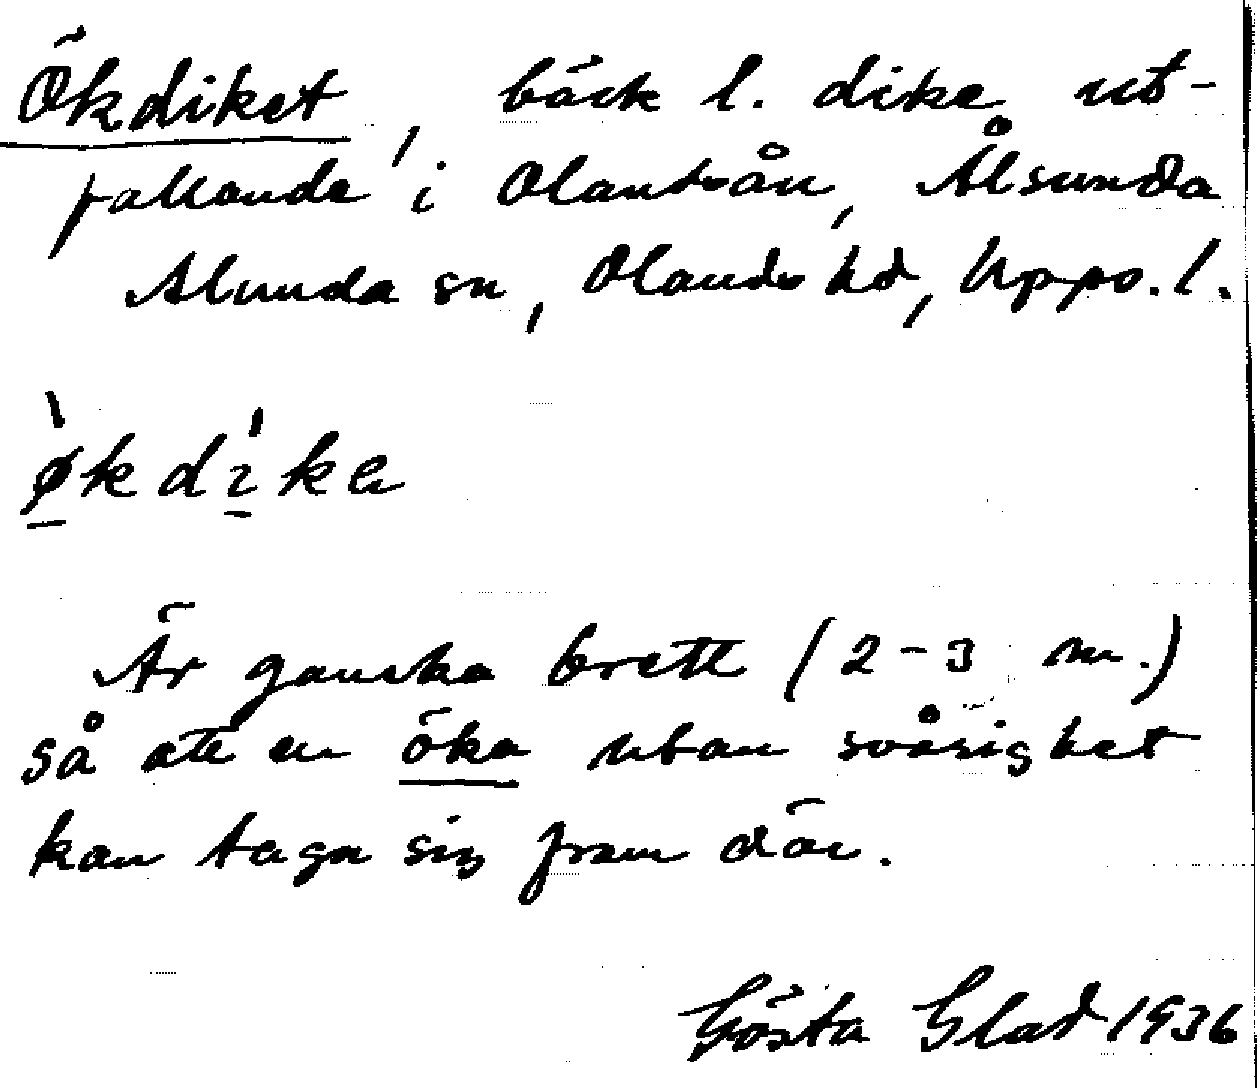 Ökdiket, bäck l. dike ut-
fallande i Olandsån, Ålsunda
Alunda sn, Olands hd, Upps. l.
ø̀kdı̍ka
Är ganska brett (2-3 m.)
så att en öka utan svårighet
kan taga sig fram där.
Gösta Glad 1936